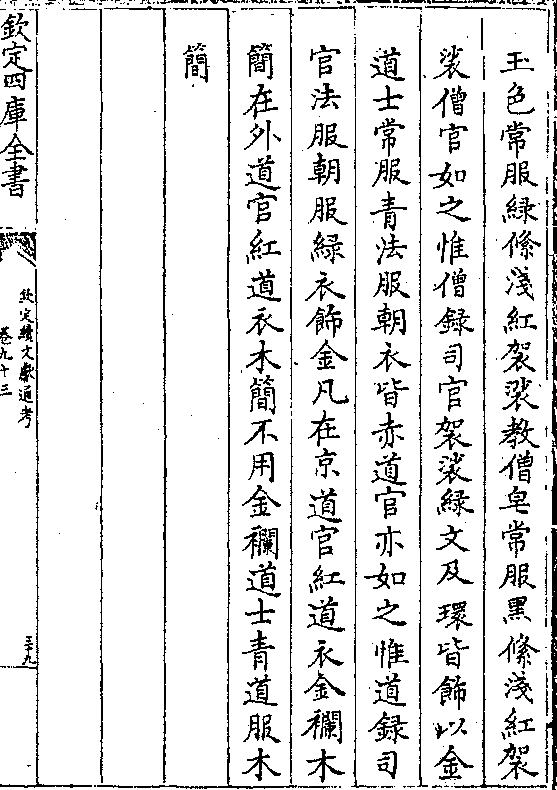 玉色常服緑絛淺紅袈裟教僧皂常服黑絛淺紅袈
裟僧官如之惟僧録司官袈裟緑文及環皆飾以金
道士常服青法服朝衣皆赤道官亦如之惟道録司
官法服朝服緑衣飾金凡在京道官紅道衣金襴木
簡在外道官紅道衣木簡不用金襴道士青道服木
簡
欽定四庫全書
欽定續文獻通考
卷九十三
三十九